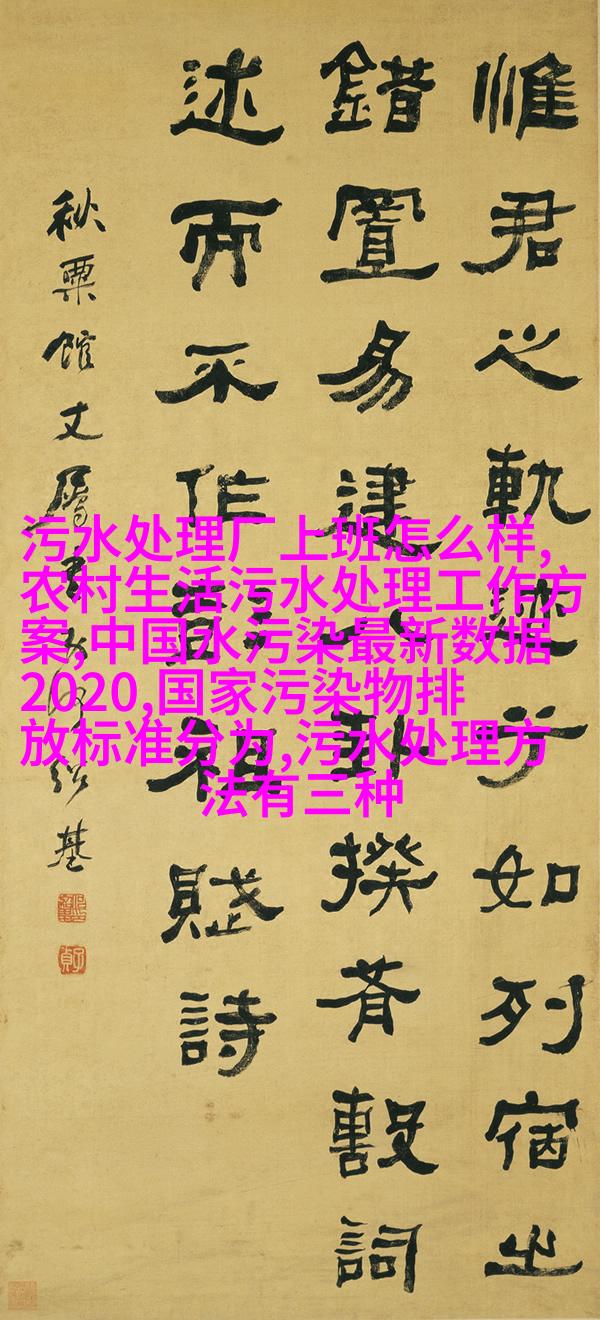 惟君之軌迹兮如列宿之
錯置易建八卦揆肴毄詞
述而不作彭祖賦詩
秋粟館丈屬書何紹基
污水处理厂上班怎么样,
农村生活污水处理工作方
案,中国水污染最新数据
2020,国家污染物排
放标准分为,污水处理方
法有三种